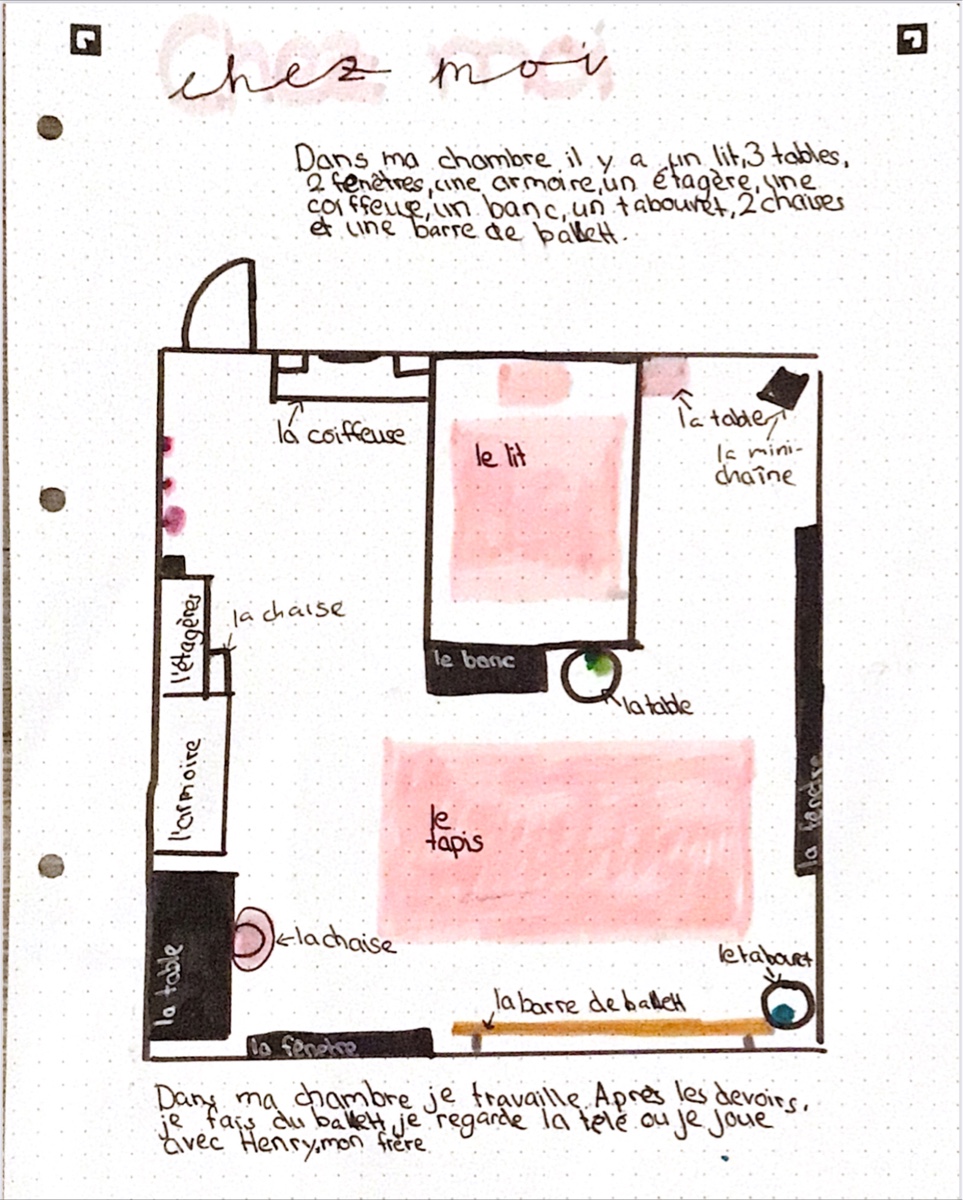 chez moi
Dans ma chambre il y a un lit, 3 tables,
2 fenêtres, une armoire, un étagère, une
coiffeuse, un banc, un tabouret, 2 chaises
et une barre de ballett.
la coiffeuse
le lit
la table
la mini-
chaîne
l'étagères
la chaise
le banc
la table
l'armoire
le
tapis
la fenêtre
la table
la chaise
le tabouret
la barre de ballett
la fenêtre
Dans ma chambre je travaille. Après les devoirs,
je fais du ballett, je regarde la télé ou je joue
avec Henry, mon frère.